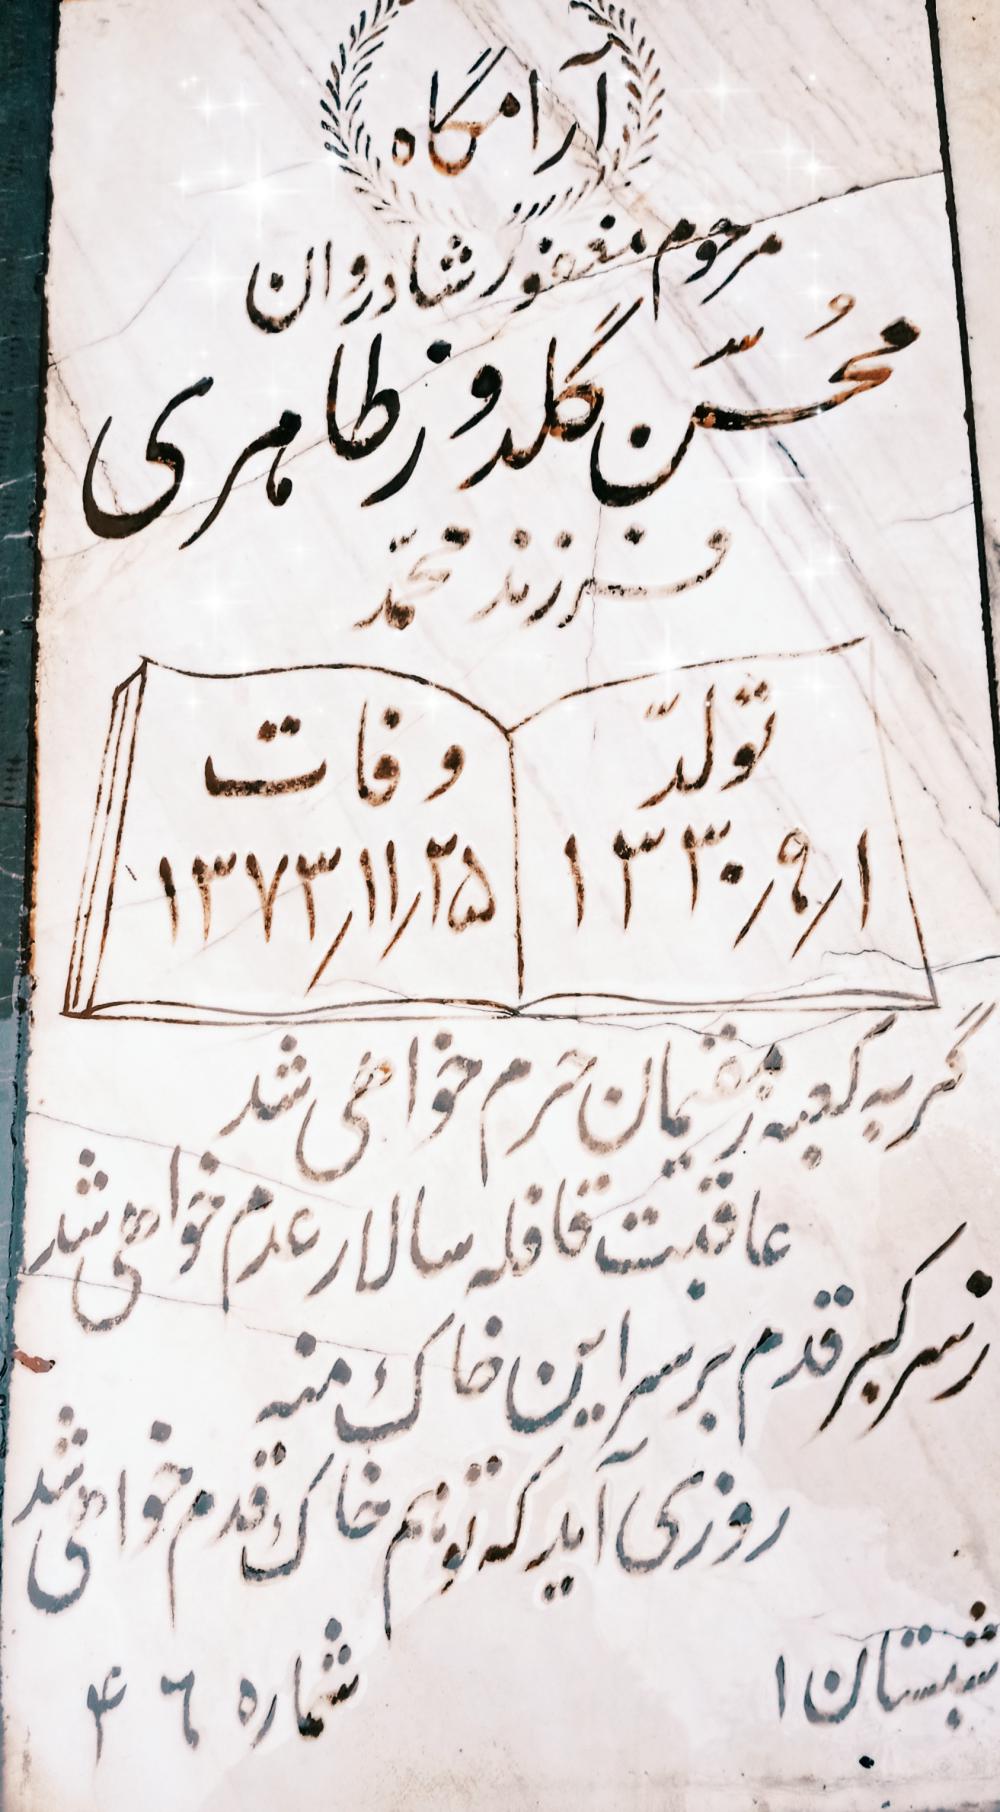 آرامگاه
مرحوم مغفور شادروان
مُحسّن گلدوز طاهری
فرزند محمّد
تولّد
۱۳۳۰/۹/۱
وفات
۱۳۷۳/۱۱/۲۵
گر به کعبه ز مقیمان حرم خواهی شد
عاقبت قافله سالار عدم خواهی شد
ز سر کبر قدم بر سر این خاک منه
روزی آید که تو هم خاک قدم خواهی شد
شبستان ۱
شماره ۴۶